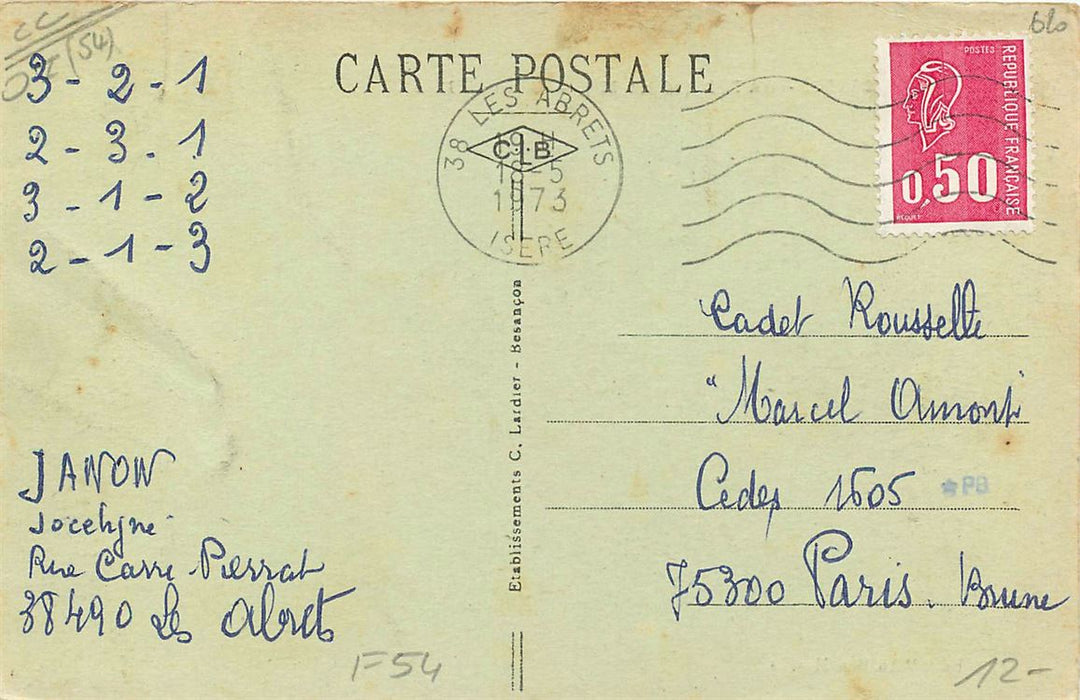 CC
(54)
3 - 2 - 1
2 - 3 . 1
3 - 1 - 2
2 - 1 - 3
CARTE POSTALE
38 LES ABRETS
19 H
CLB
18-5
1973
ISERE
POSTES
REPUBLIQUE FRANÇAISE
0,50
BEQUET
Cadet Rousselle
"Marcel Amont"
Cedex 1605
*PB
75300 Paris. Brune
Etablissements C. Lardier - Besançon
JANON
Jocelyne
Rue Carre Pierrat
38490 Les Abrets
F54
12-